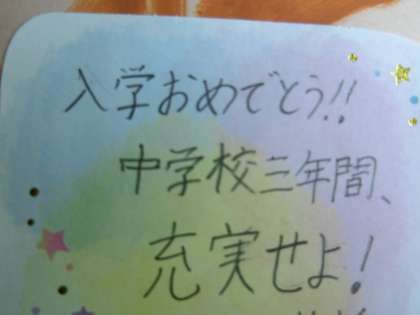 入学おめでとう!!
中学校三年間、
充実せよ!